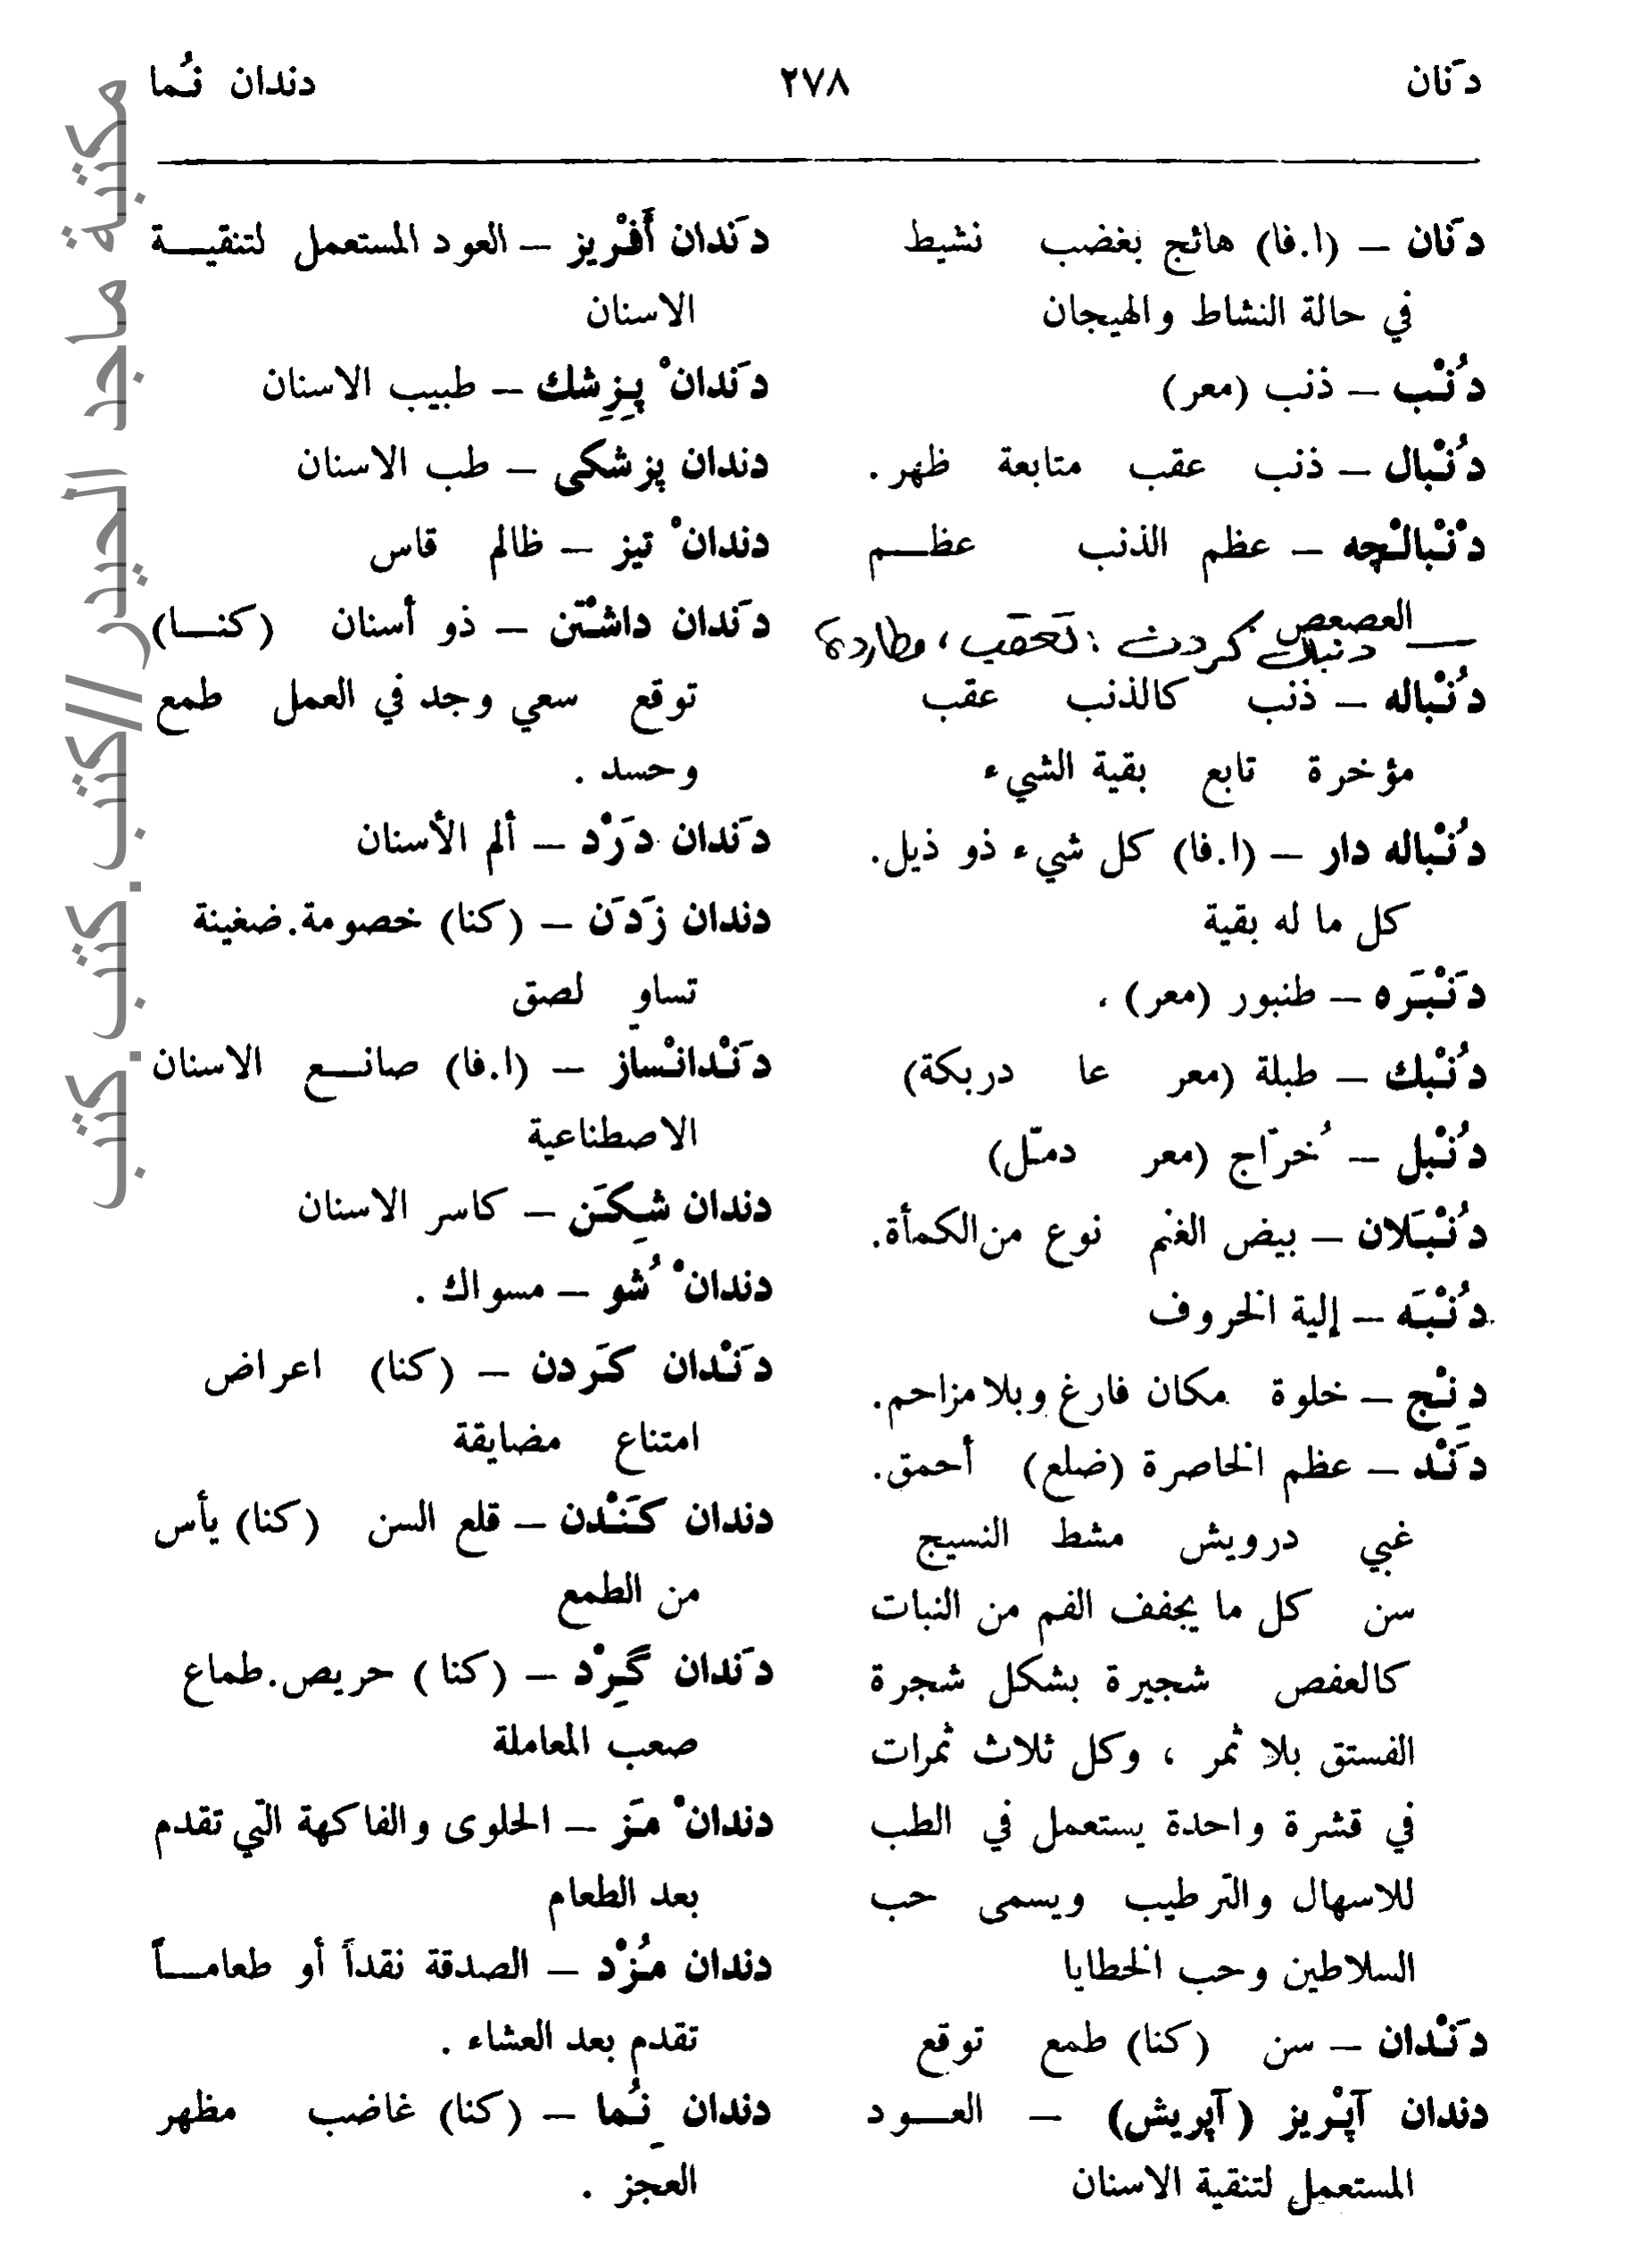 دَنان ٢٧٨ دندان نُما
دَنان – (ا.فا) هائج بغضب نشيط
في حالة النشاط والهيجان
دُنْب – ذنب (معر)
دُنْبال – ذنب عقب متابعة ظهر.
دْنْبالْچه – عظم الذنب عظـــم
العصعص
— دنبال كردن : تعقب ، مطاردة
دُنْباله – ذنب كالذنب عقب
مؤخرة تابع بقية الشيء
دُنْباله دار – (ا.فا) كل شيء ذو ذيل.
كل ما له بقية
دَنْبَره – طنبور (معر) .
دُنْبك – طبلة (معر عا دربكة)
دُنْبل – خُرّاج (معر دمّل)
دُنْبَلان – بيض الغنم نوع من الكمأة.
دُنْبَه – إلية الخروف
دِنْج – خلوة مكان فارغ وبلا مزاحم.
دَنْد – عظم الخاصرة (ضلع) أحمق.
غبي درويش مشط النسيج
سن كل ما يجفف الفم من النبات
كالعفص شجيرة بشكل شجرة
الفستق بلا ثمر ، وكل ثلاث ثمرات
في قشرة واحدة يستعمل في الطب
للاسهال والترطيب ويسمى حب
السلاطين وحب الخطايا
دَنْدان – سن (كنا) طمع توقع
دندان آپْريز (آپريش) – العـــود
المستعمل لتنقية الاسنان
دَندان أَفْريز – العود المستعمل لتنقيـــة
الاسنان
دَندانْ پِزِشك – طبيب الاسنان
دندان پزشكى – طب الاسنان
دندانْ تيز – ظالم قاس
دَندان داشْتن – ذو أسنان (كنـــا)
توقع سعي وجد في العمل طمع
وحسد .
دَندان دَرْد – ألم الأسنان
دندان زَدَن – (كنا) خصومة.ضغينة
تساوٍ لصق
دَنْدانْساز – (ا.فا) صانـــع الاسنان
الاصطناعية
دندان شِكَن – كاسر الاسنان
دندانْ شُو – مسواك .
دَنْدان كَردن – (كنا) اعراض
امتناع مضايقة
دندان كَنْدن – قلع السن (كنا) يأس
من الطمع
دَندان گِرْد – (كنا) حريص.طماع
صعب المعاملة
دندانْ مَز – الحلوى والفاكهة التي تقدم
بعد الطعام
دندان مُزْد – الصدقة نقداً أو طعامـــاً
تقدم بعد العشاء .
دندان نُِما – (كنا) غاضب مظهر
العجز .
مكتبة ماجد الحيدر//كتب.كتب.كتب